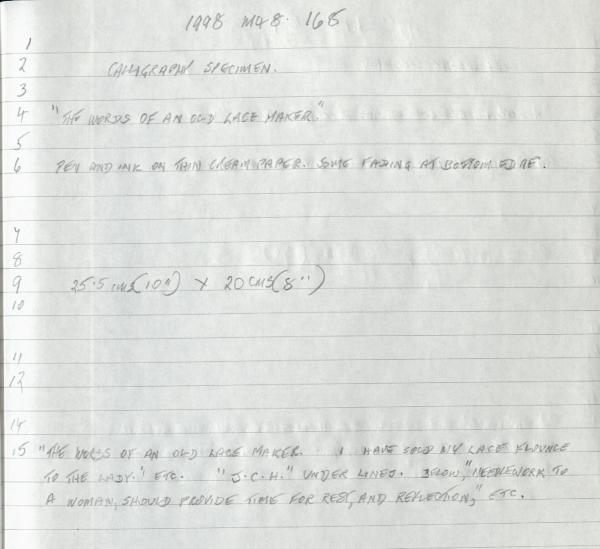 1998 M48. 165
1
2 CALLIGRAPHY SPECIMEN.
3
4 "THE WORDS OF AN OLD LACE MAKER."
5
6 PEN AND INK ON THIN CREAM PAPER. SOME FADING AT BOTTOM EDGE.
7
8
9 25.5 CMS(10") X 20 CMS(8")
10
11
12
14
15 "THE WORDS OF AN OLD LACE MAKER. I HAVE SOLD MY LACE FLOUNCE
TO THE LADY." ETC. "J.C.H." UNDER LINES. BELOW, "NEEDLEWORK TO
A WOMAN, SHOULD PROVIDE TIME FOR REST, AND REFLECTION," ETC.